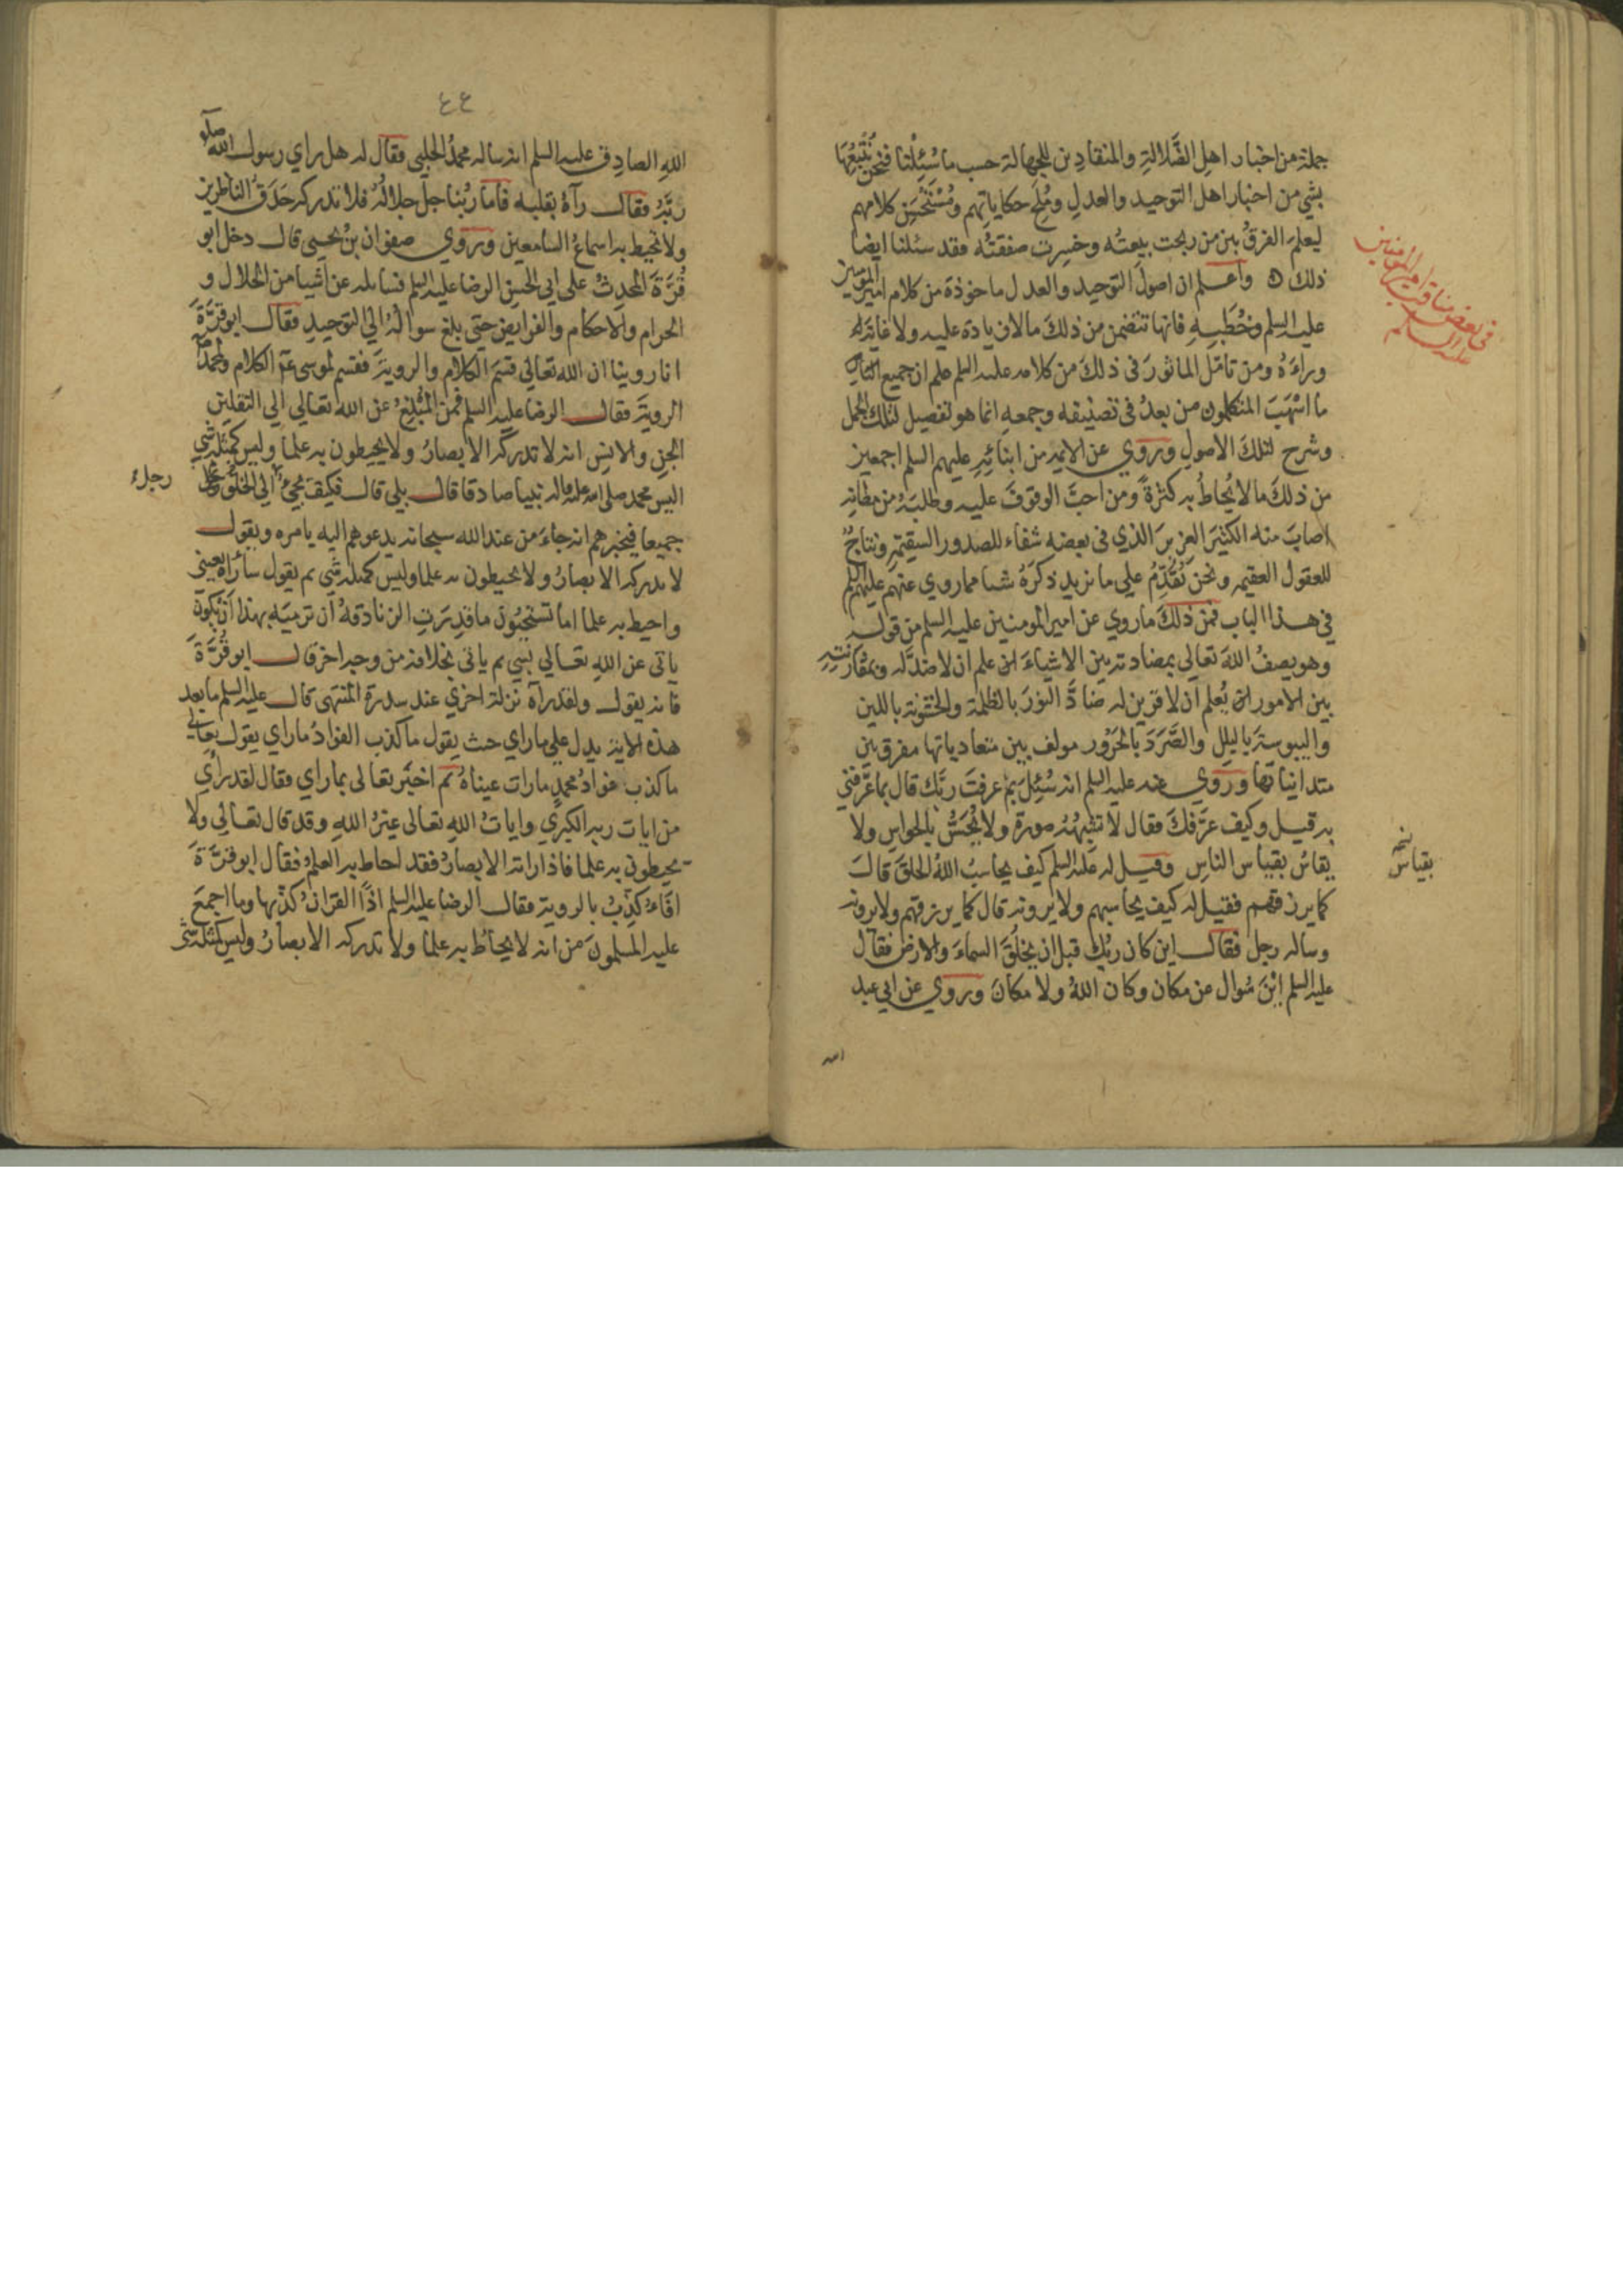 جملة من اخبار اهلِ الضَّلالةِ والمنقادِين للجهالة حسب ما سُئِلْنا فنحن نُتْبِعُهَا
بشي من اخبار اهل التوحيد والعدلِ ومُلَحِ حكاياتِهم ومُسْتَحْسَنِ كلامهم
ليعلم الفرقُ بين من ربحت بيعتُه وخسِرت صفقتُه فقد سئلنا ايضا
ذلك ه واعلم ان اصولَ التوحيد والعدل ماخوذة من كلام امير المؤمنين
عليه السلم وخُطَبِه فانها تتضمن من ذلكَ مالا زيادة عليه ولا غاية له
وراءَهُ ومن تامّل الماثورَ في ذلكَ من كلامه عليه السلم علم ان جميع
ما اسْهَبَ المتكلمون من بعدُ في تصنيفه وجمعهِ انما هو تفصيل لتلك الجمل
وشرح لتلكَ الاصولِ ورُوي عن الايمة من ابنائِهِ عليهم السلم اجمعين
من ذلكَ ما لا يُحاطُ به كثرةً ومن احبَّ الوقوفَ عليه وطلبَهُ من مظانه
اصابَ منه الكثيرَ الغزيرَ الذي في بعضهِ شفاء للصدور السقيمة ونتاجٌ
للعقول العقيمه ونحن نُقَدِّمُ علي ما نريد ذكرَهُ شيا مما روي عنهم عليهم السلم
في هذا الباب فمن ذلكَ ما روي عن امير المومنين عليه السلم من قوله
وهو يصفُ اللهَ تعالي بمضادته بين الاشياءَ علم ان لا ضدَّ له وبمقارنتِهِ
بين الامور يُعلم ان لا قرين له ضادَّ النورَ بالظلمة والخشونة باللين
واليبوسةَ بالبلل والصَّرَدَ بالحَرُور مولف بين متعادياتها مفرق بين
متدانياتها ورُوي عنه عليه السلم انه سُئِلَ بِمَ عرفتَ ربَّكَ قال بما عَرَّفني
به قيل وكيف عرَّفكَ فقال لا تشبهُهُ صورة ولا يُحَسُّ بالحواس ولا
يقاسُ بقياس الناسِ وقيل له عليه السلم كيف يحاسبُ اللهُ الخلقَ قالَ
كما يرزقهم فقيل له كيف يحاسبهم ولا يرونه قال كما يرزقهم ولا يرونه
وساله رجل فقال اين كان ربُّك قبل ان يخلُقَ السماءَ والارضَ فقال
عليه السلم اينَ سُوال عن مكان وكان اللهُ ولا مكانَ ورُوي عن ابي عبد
في بعض مناقب امير المؤمنين
عليه السلم
بقياس
٤٤
اللهِ الصادِق عليه السلم انه ساله محمدٌ الحلبي فقال له هل راي رسولُ الله
ربَّهُ فقال رآهُ بقلبه فاما رَبُّنا جلَّ جلالُهُ فلا تدركه حَدَقُ الناظرين
ولا تحيط به اسماعُ السامعين ورُوي صفوان بنُ يحيى قال دخل ابو
قُرَّةَ المحدثُ على ابي الحسن الرضا عليه السلم فساله عن اشيا من الحلال و
الحرام والاحكام والفرايض حتي بلغ سوالُهُ الي التوحيد فقال ابو قُرَّةَ
انا روينا ان الله تعالي قسَمَ الكلام والرويةَ فقسم لموسى عم الكلام ولمحمدٍ
الرويةَ فقال الرضا عليه السلم فمن المُبْلِغُ عن الله تعالي الي الثقلين
الجن والانس انه لا تدركه الابصارُ ولا يحيطون به علما وليس كمثله شي
اليس محمد صلى الله عليه واله نبيا صادقا قال بلي قال فكيف يجئُ الي الخلق
جميعا فيخبرهم انه جاءَ من عند الله سبحانه يدعوهم اليه بامره ويقول
لا تدركه الابصارُ ولا يحيطون به علما وليس كمثله شي ثم يقول سأراه بعيني
واحيط به علما اما تستحيُون ما قدِرَت الزنادقةُ ان ترميَه بهذا ان يكون
ياتى عن اللهِ تعالي بشي ثم ياتى بخلافه من وجه اخر قال ابو قُرَّةَ
فانه يقول ولقد رآه نزلة اخري عند سدرة المنتهى قال عليه السلم ما بعد
هذه الاية يدل علي ما راي حيث يقول ما كذب الفوادُ ما راي يقول تعالي
ما كذب فوادُ محمدٍ ما رات عيناهُ ثم اخبَر تعالى بما راي وقال لقد راي
من ايات ربه الكبري واياتُ اللهِ تعالى غيرُ اللهِ وقد قال تعالي ولا
يحيطون به علما فاذا راته الابصارُ فقد احاط به العلمُ فقال ابو قرَّةَ
افاَءُكَذِّبُ بالروية فقال الرضا عليه السلم اذًا القرانُ كذّبها وما اجمعَ
عليه المسلمونَ من انه لا يحاطُ به علما ولا تدركه الابصارُ وليس كمثله شي
رجلٌ